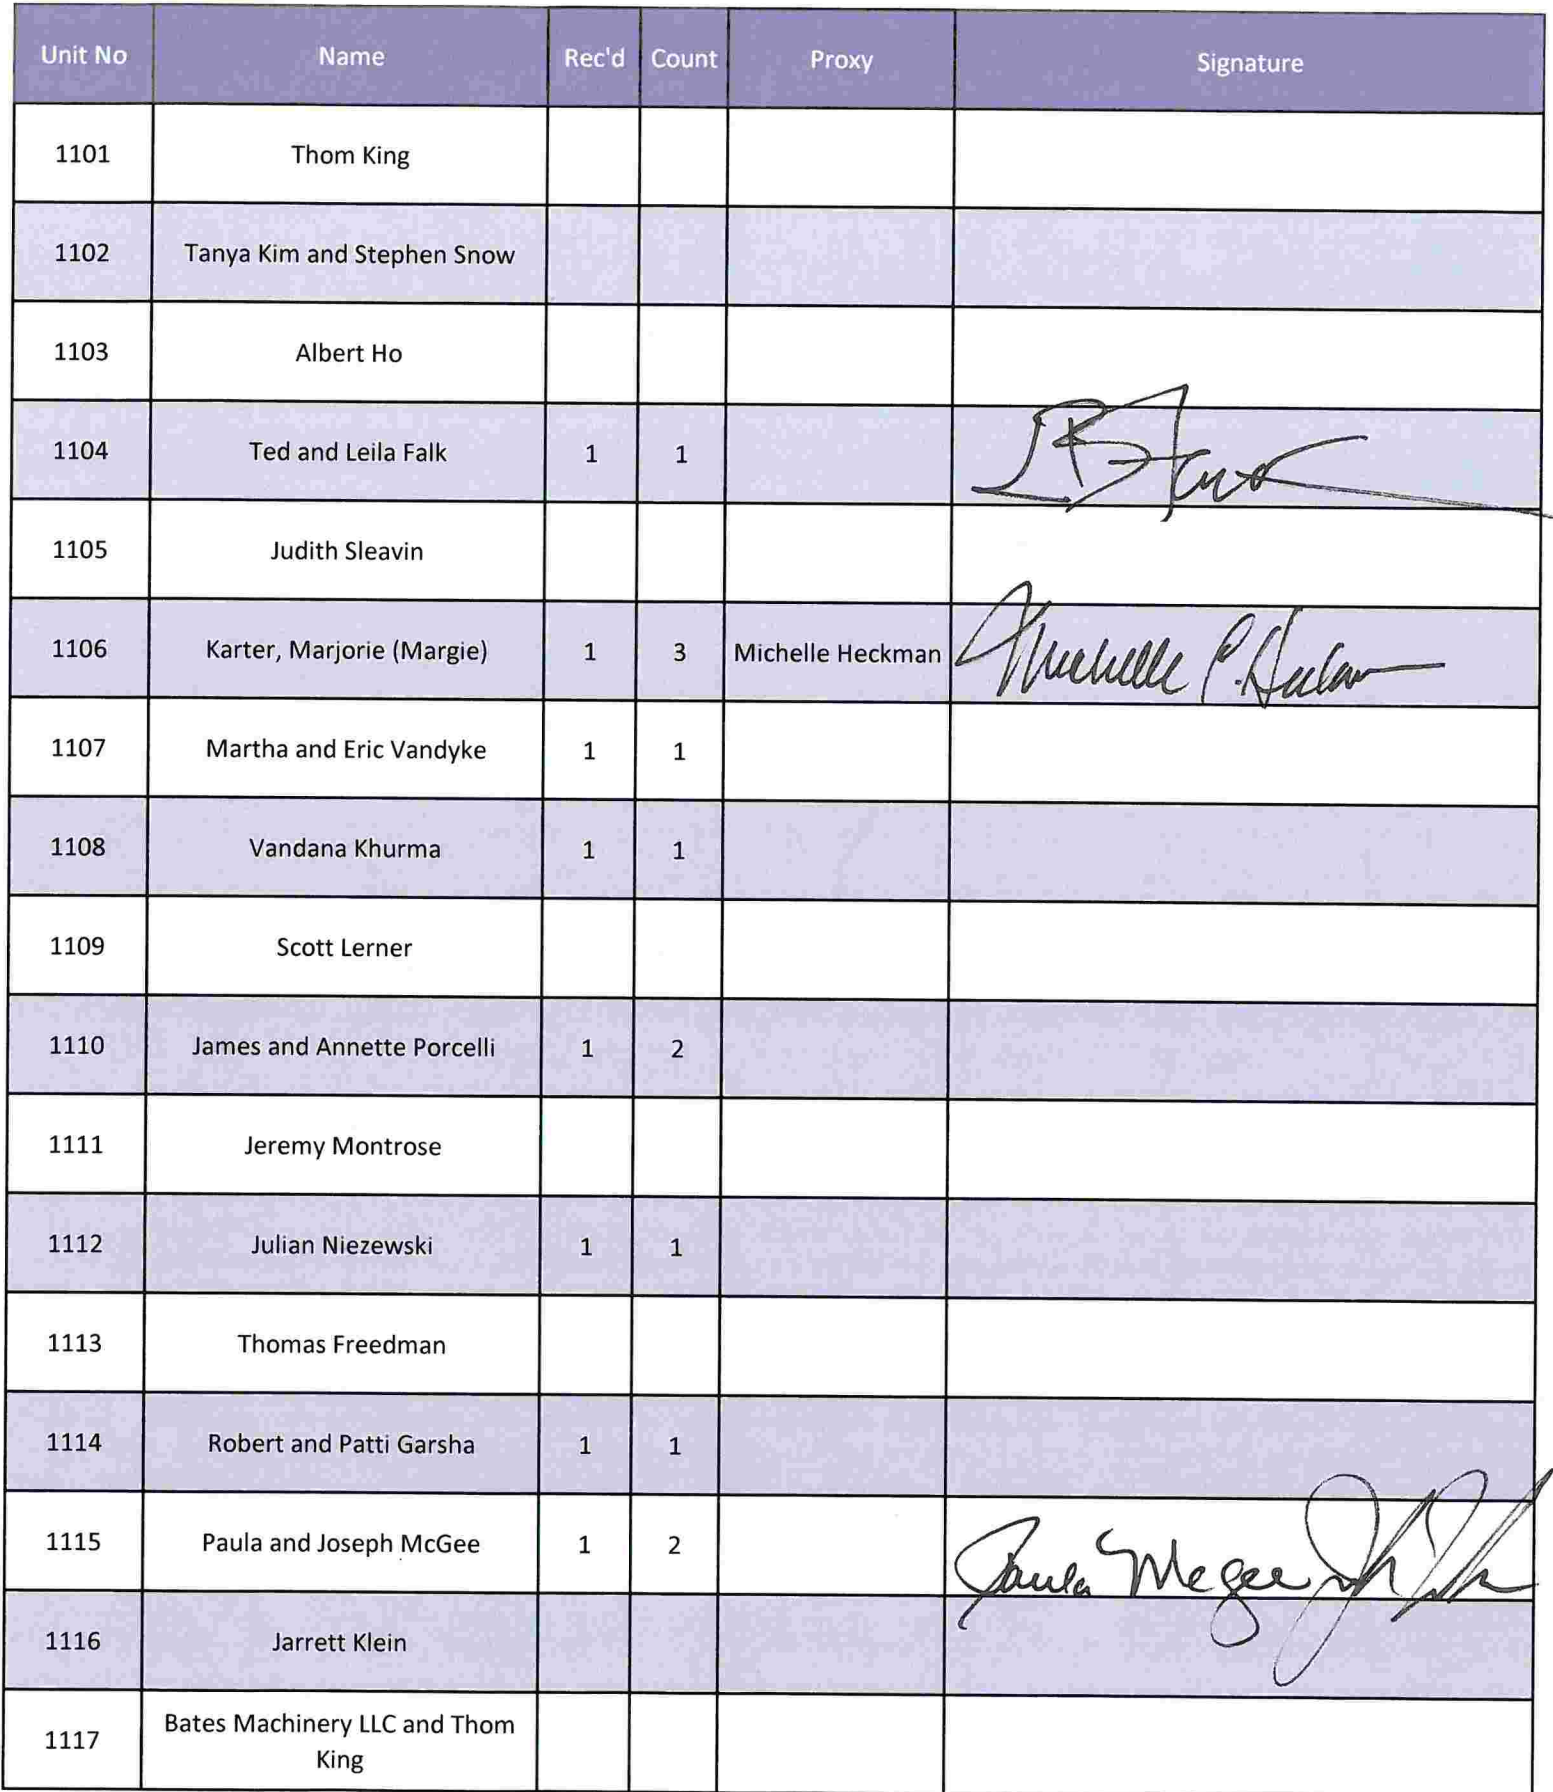 Unit No Name Rec'd Count Proxy Signature
1101 Thom King
1102 Tanya Kim and Stephen Snow
1103 Albert Ho
1104 Ted and Leila Falk 1 1
1105 Judith Sleavin
1106 Karter, Marjorie (Margie) 1 3 Michelle Heckman Michelle P.
1107 Martha and Eric Vandyke 1 1
1108 Vandana Khurma 1 1
1109 Scott Lerner
1110 James and Annette Porcelli 1 2
1111 Jeremy Montrose
1112 Julian Niezewski 1 1
1113 Thomas Freedman
1114 Robert and Patti Garsha 1 1
1115 Paula and Joseph McGee 1 2 Paula McGee
1116 Jarrett Klein
1117 Bates Machinery LLC and Thom
King